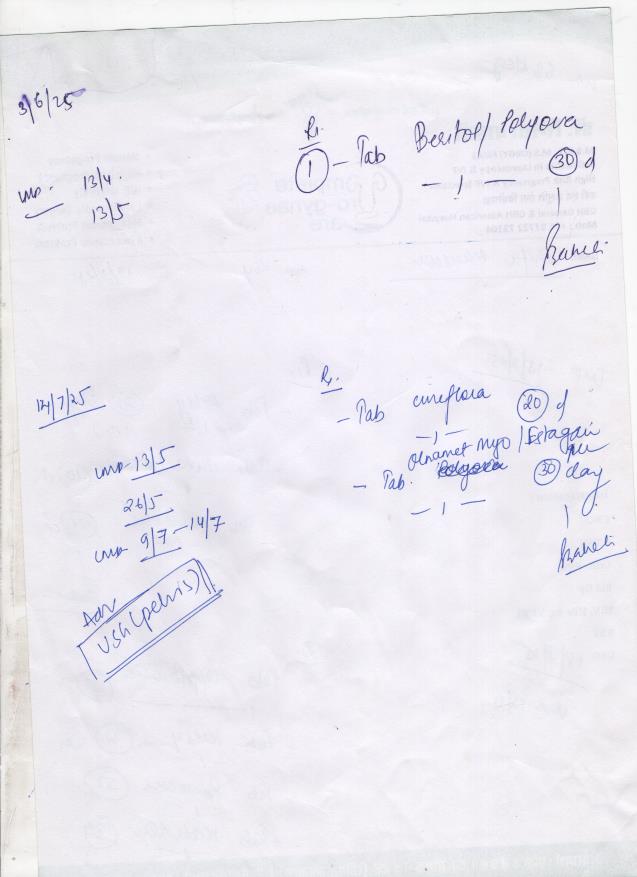 3/6/25
Rx.
① - Tab Beritol / Polyova
- 1 - 30 d
LMP. 13/4.
13/5
14/7/25
Rx.
- Tab cureflora 20 d
- 1 -
LMP 13/5
Myo /
- Tab. Polyova 30 day
- 1 -
26/5
LMP 9/7 - 14/7
Adv
USG (pelvis)